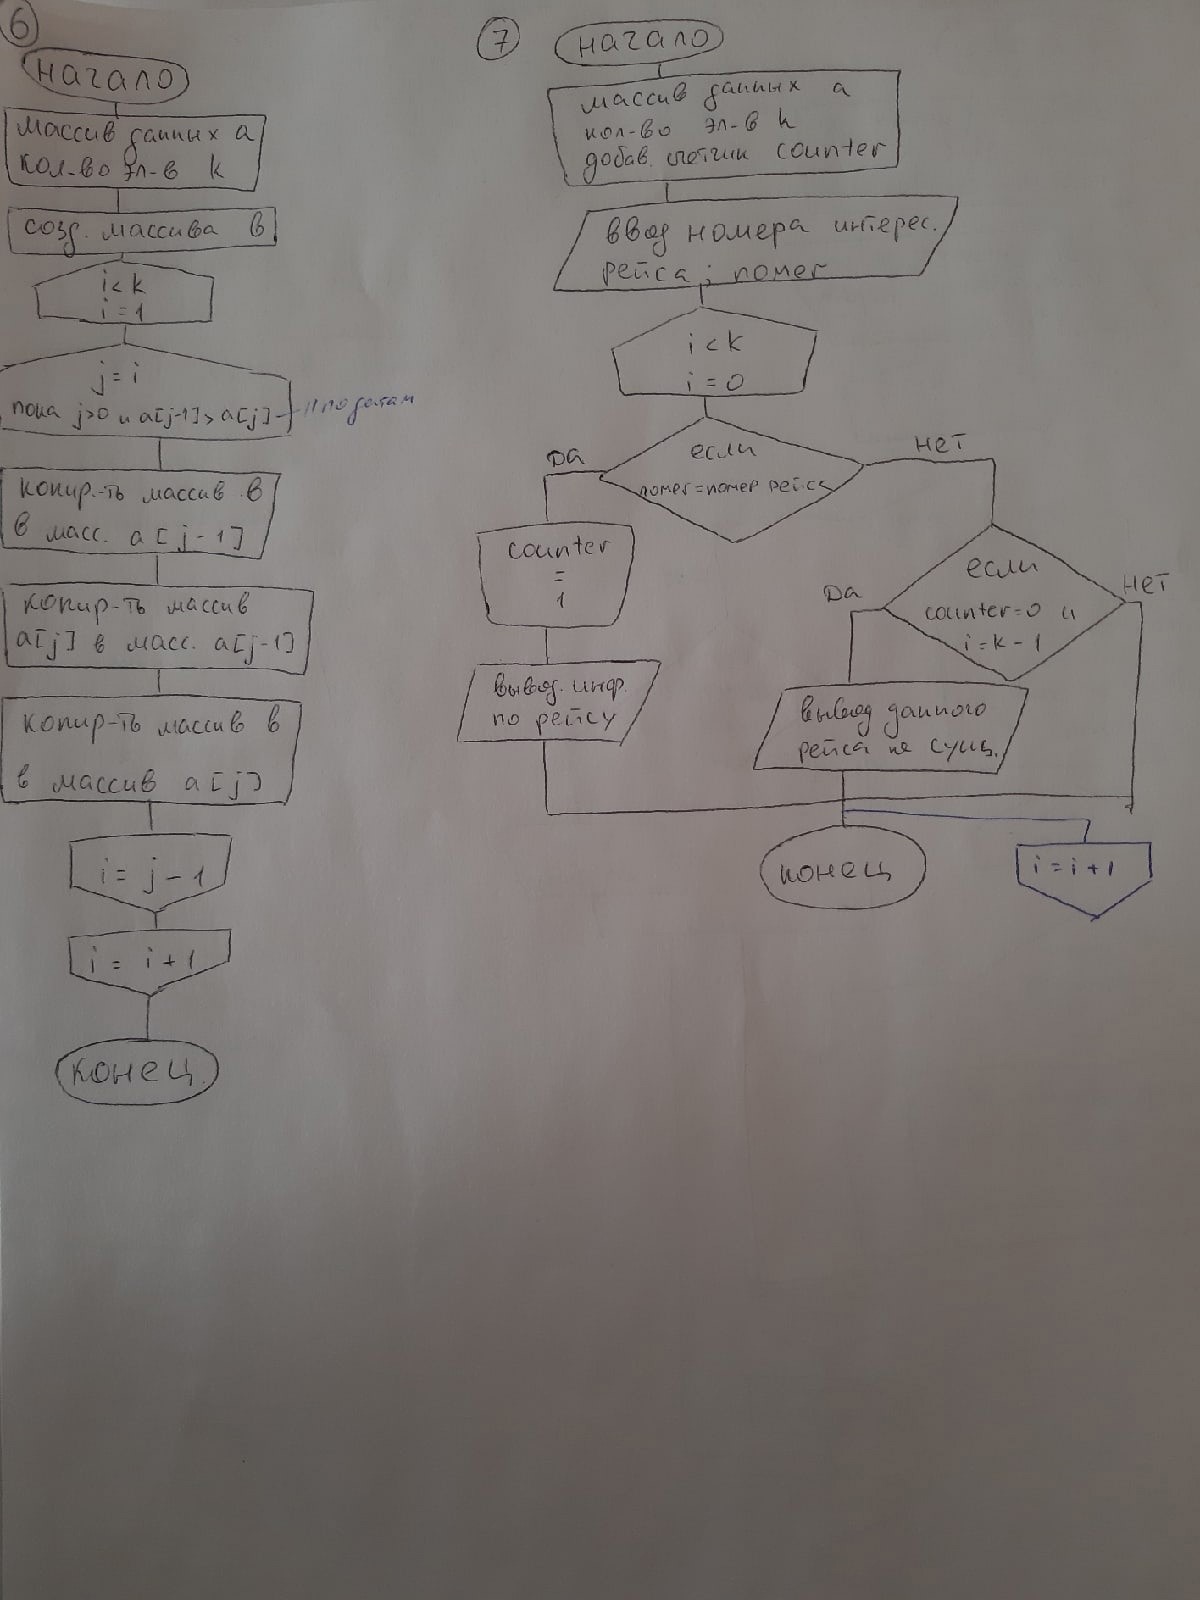 6
начало
массив данных a
кол-во эл-в k
созд. массива b
i<k
i=1
j=i
пока j>0 и a[j-1]>a[j]
// по датам
копир-ть массив b
в масс. a[j-1]
копир-ть массив
a[j] в масс. a[j-1]
копир-ть массив b
в массив a[j]
i = j-1
i = i+1
конец
7
начало
массив данных a
кол-во эл-в k
добав. счетчик counter
ввод номера интерес.
рейса ; nomer
i<k
i=0
если
nomer=номер рейса
да
нет
counter
=
1
вывод. инф.
по рейсу
если
counter=0 и
i=k-1
да
нет
вывод данного
рейса не сущ.
конец
i=i+1